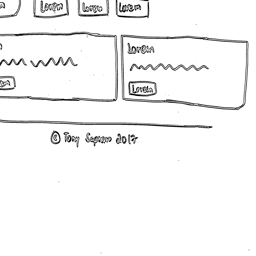 Lorem Lorem Lorem
Lorem
Lorem
Lorem
© Tony
2017